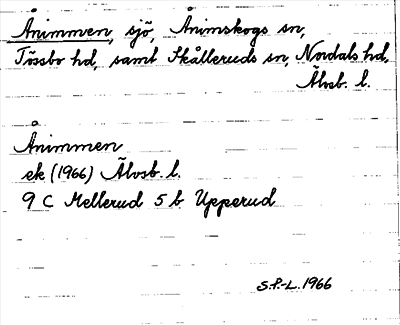 Ånimmen, sjö, Ånimskogs sn,
Tössbo hd, samt Skålleruds sn, Nordals hd,
Älvsb. l.
Ånimmen
ek (1966) Älvsb. l.
9 C Mellerud 5 b Upperud
S.P.-L. 1966